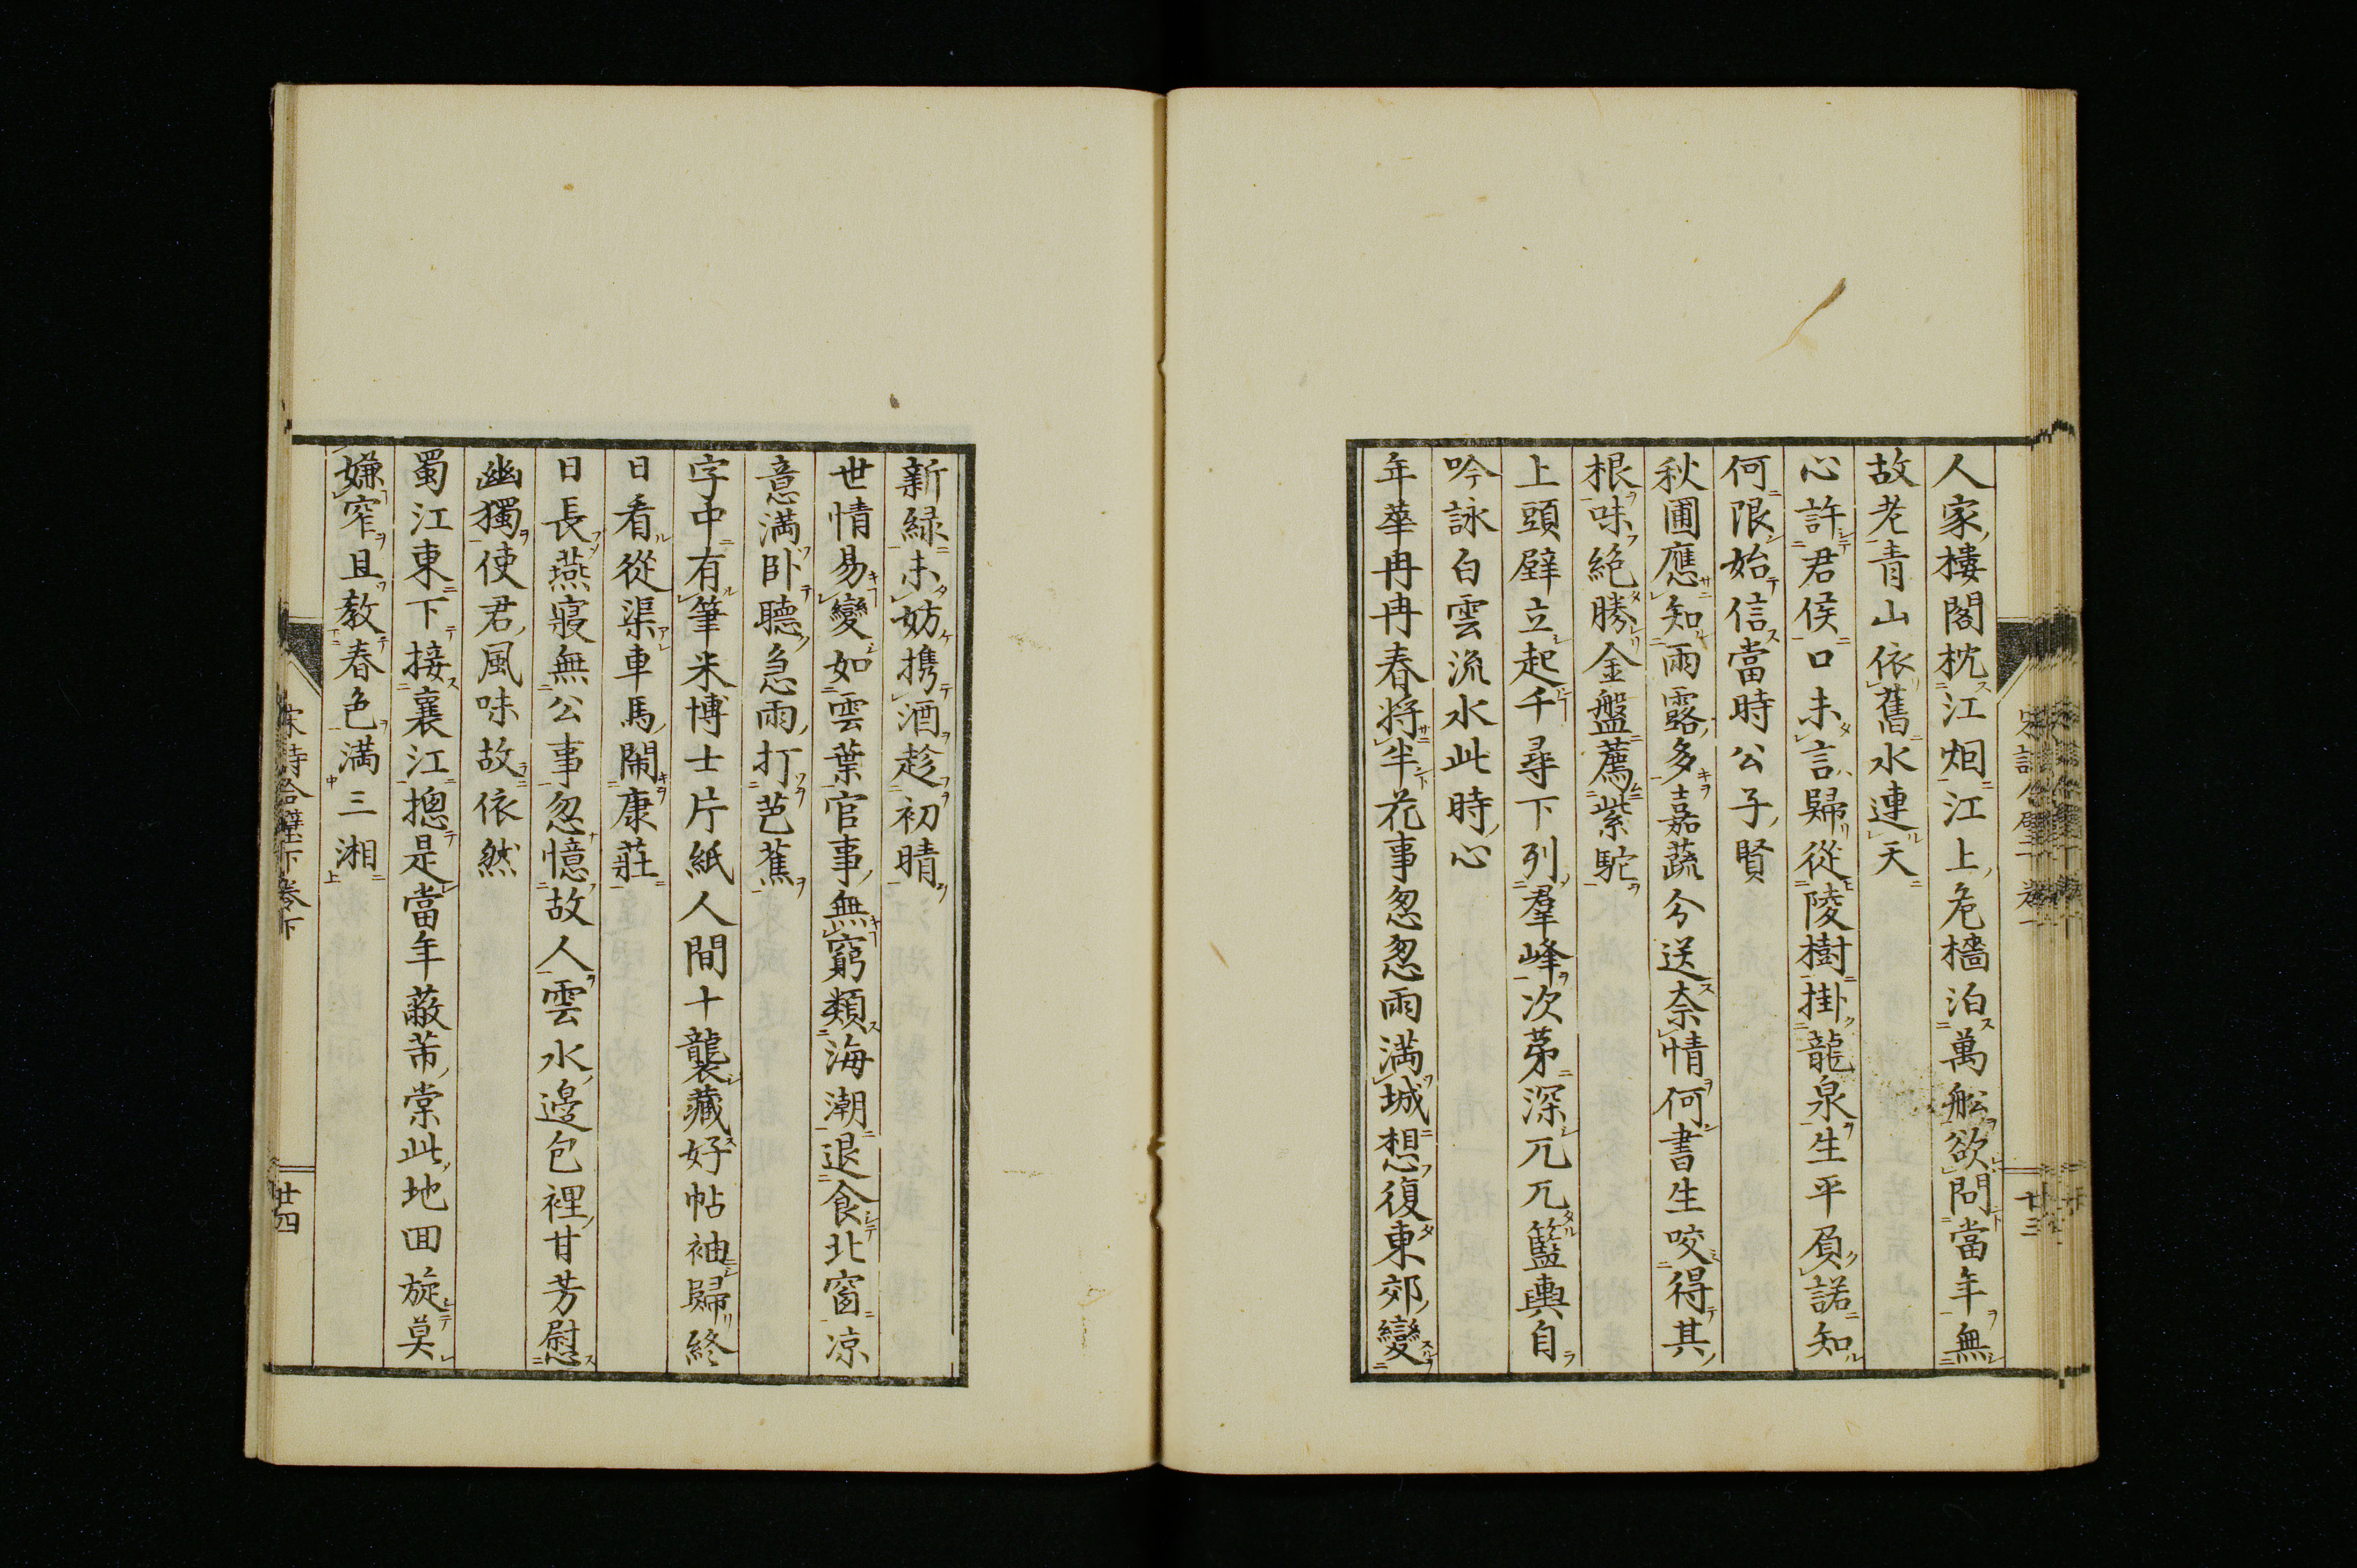 人家樓閣枕江烟江上危檣泊萬舩欲問當年無
故老青山依舊水連天
心許君侯口未言歸從陵樹掛龍泉生平負諾知
何限始信當時公子賢
秋圃應知雨露多嘉蔬今送柰情何書生咬得其
根味絶勝金盤薦紫駝
上頭壁立起千尋下列羣峰次苐深兀兀籃輿自
吟詠白雲流水此時心
年華冉冉春將半花事忽忽雨満城想復東郊變
新緑未妨携酒趁初晴
世情易變如雲葉官事無窮類海潮退食北窗凉
意満卧聽急雨打芭蕉
字中有筆米博士片紙人間十襲藏好帖袖歸終
日看從渠車馬閙康莊
日長燕寢無公事忽憶故人雲水邊包裡甘芳慰
幽獨使君風味故依然
蜀江東下接襄江摠是當年蔽芾棠此地囬旋莫
嫌窄且教春色満三湘
宋詩合璧下卷下
廿四
廿三